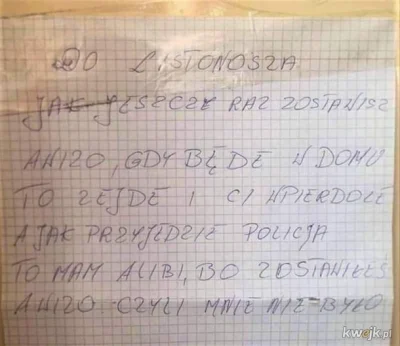 DO LISTONOSZA
JAK JESZCZE RAZ ZOSTAWISZ
AWIZO, GDY BĘDĘ W DOMU
TO ZEJDE I CI WPIERDOLĘ
A JAK PRZYJEDZIE POLICJA
TO MAM ALIBI, BO ZOSTAWIŁEŚ
AWIZO CZYLI MNIE NIE BYŁO
kwejk.pl